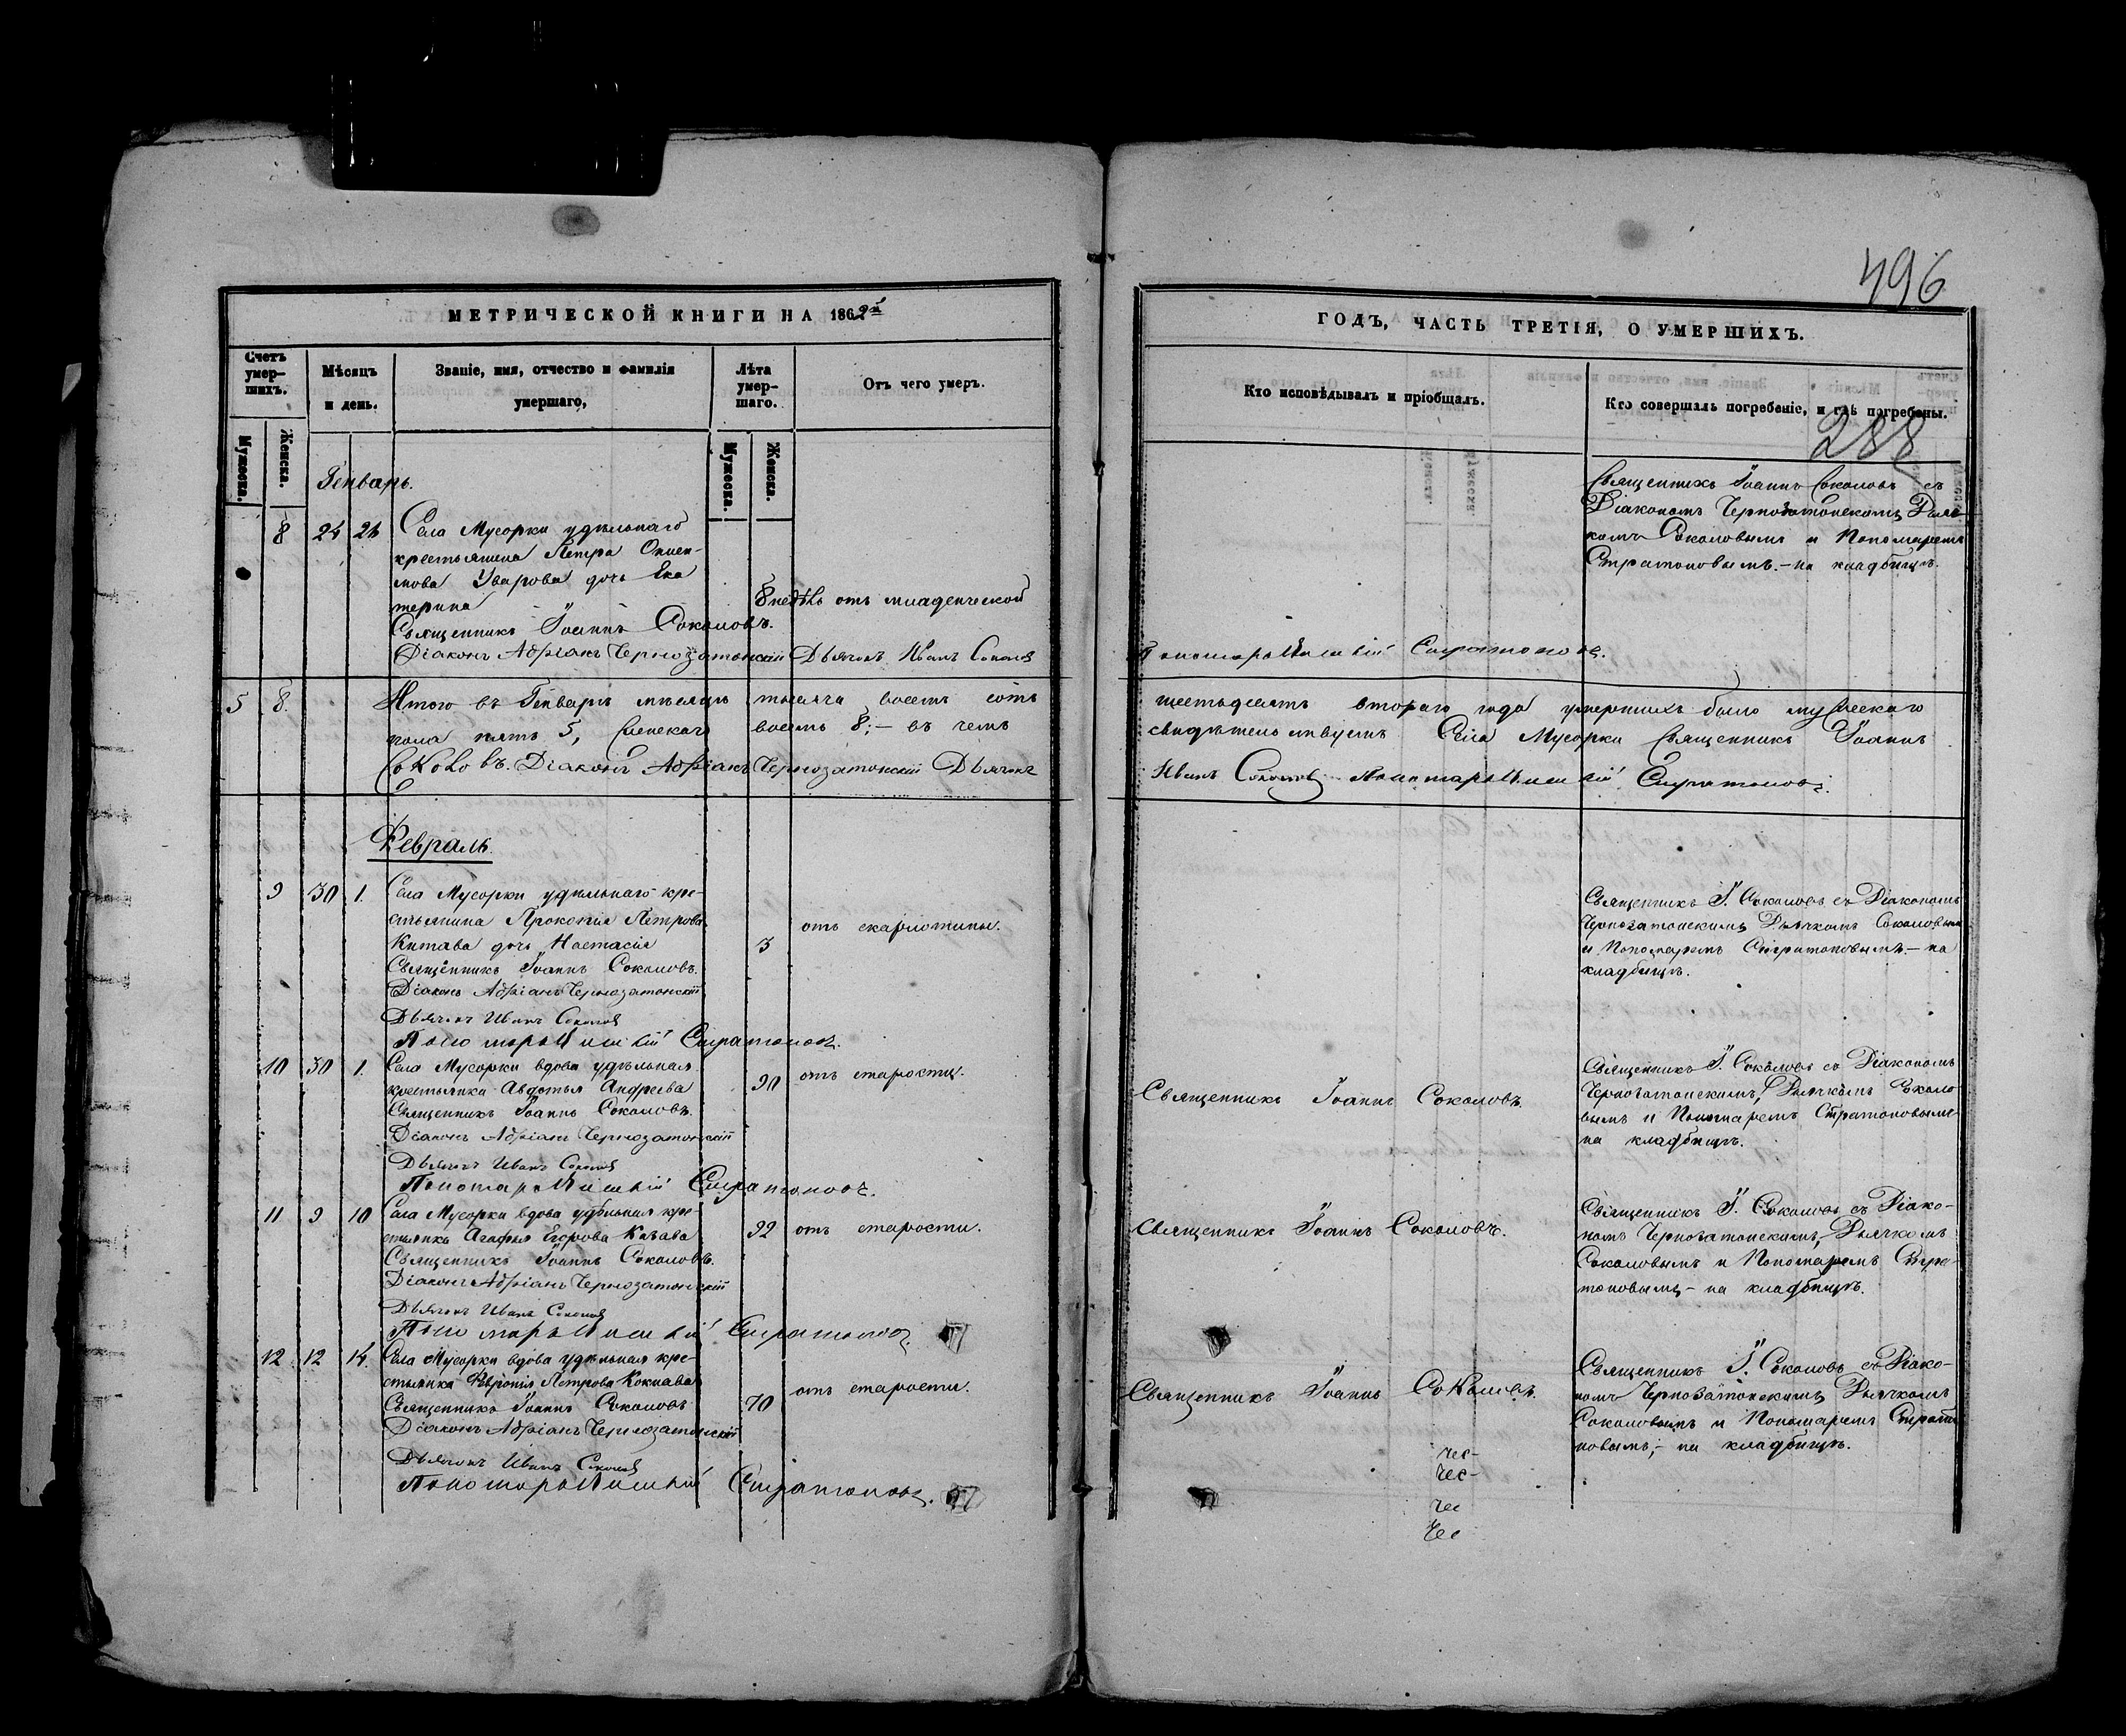 496
МЕТРИЧЕСКОЙ КНИГИ НА 1862й
ГОДЪ, ЧАСТЬ ТРЕТІЯ, О УМЕРШИХЪ.
Счетъ умер-шихъ.
Мужеска.
Женска.
Мѣсяцъ и день.
Званіе, имя, отчество и фамилія умершаго,
Лѣта умер-шаго.
Мужеска.
Женска.
Отъ чего умеръ.
Кто исповѣдывалъ и пріобщалъ.
Кто совершалъ погребеніе, и гдѣ погребены.
288
Генварь.
8 24 26 Села Мусорки удѣльнаго
крестьянина Петра
Уварова дочь Ека
терина
8 недѣль отъ младенческой
Священникъ Іоаннъ Соколовъ.
Діаконъ Адріанъ Чернозатонскій Дьячокъ Иванъ Соколов
Пономарь Стратоновъ.
Священникъ Іоаннъ Соколовъ съ
Діакономъ Чернозатонскимъ, Дьяч
комъ Соколовымъ и Пономаремъ
Стратоновымъ. - на кладбищѣ.
5 8. Итого въ Генварѣ мѣсяцѣ тысяча восемь сотъ
шестьдесятъ втораго года умершихъ было мужескаго
пола пять 5, женскаго восемь 8; - въ чемъ
свидѣтельствуемъ Села Мусорки Священникъ Іоаннъ
Соколовъ. Діаконъ Адріанъ Чернозатонскій Дьячокъ
Иванъ Соколов Пономарь Стратоновъ.
Февраль.
9 30 1. Села Мусорки удѣльнаго кре-
стьянина Прокопія Петрова
Китава дочь Настасія
3
отъ скарлотины.
Священникъ Іоаннъ Соколовъ.
Діаконъ Адріанъ Чернозатонскій
Дьячокъ Иванъ Соколов
Пономарь Стратоновъ.
Священникъ І. Соколовъ съ Діакономъ
Чернозатонскимъ, Дьячкомъ Соколовымъ
и Пономаремъ Стратоновымъ. - на
кладбищѣ.
10 30 1. Села Мусорки вдова удѣльная
крестьянка Авдотья Андреева
90
отъ старости.
Священникъ Іоаннъ Соколовъ.
Діаконъ Адріанъ Чернозатонскій
Дьячокъ Иванъ Соколов
Пономарь Стратоновъ.
Священникъ Іоаннъ Соколовъ.
Священникъ І. Соколовъ съ Діакономъ
Чернозатонскимъ, Дьячкомъ Соколо-
вымъ и Пономаремъ Стратоновымъ
на кладбищѣ.
11 9 10 Села Мусорки вдова удѣльная кре-
стьянка Агафья Егорова
92 отъ старости.
Священникъ Іоаннъ Соколовъ.
Діаконъ Адріанъ Чернозатонскій
Дьячокъ Иванъ Соколов
Пономарь Стратоновъ.
Священникъ Іоаннъ Соколовъ.
Священникъ І. Соколовъ съ Діако-
номъ Чернозатонскимъ, Дьячкомъ
Соколовымъ и Пономаремъ Стра-
тоновымъ - на кладбищѣ.
12 12 14. Села Мусорки вдова удѣльная кре-
стьянка Петрова
70
отъ старости.
Священникъ Іоаннъ Соколовъ
Діаконъ Адріанъ Чернозатонскій
Дьячокъ Иванъ Соколов
Пономарь Стратоновъ.
Священникъ Іоаннъ Соколовъ.
Священникъ І. Соколовъ съ Діако-
номъ Чернозатонскимъ, Дьячкомъ
Соколовымъ и Пономаремъ Страто
новымъ; - на кладбищѣ.
чес-
чес-
чес
чес